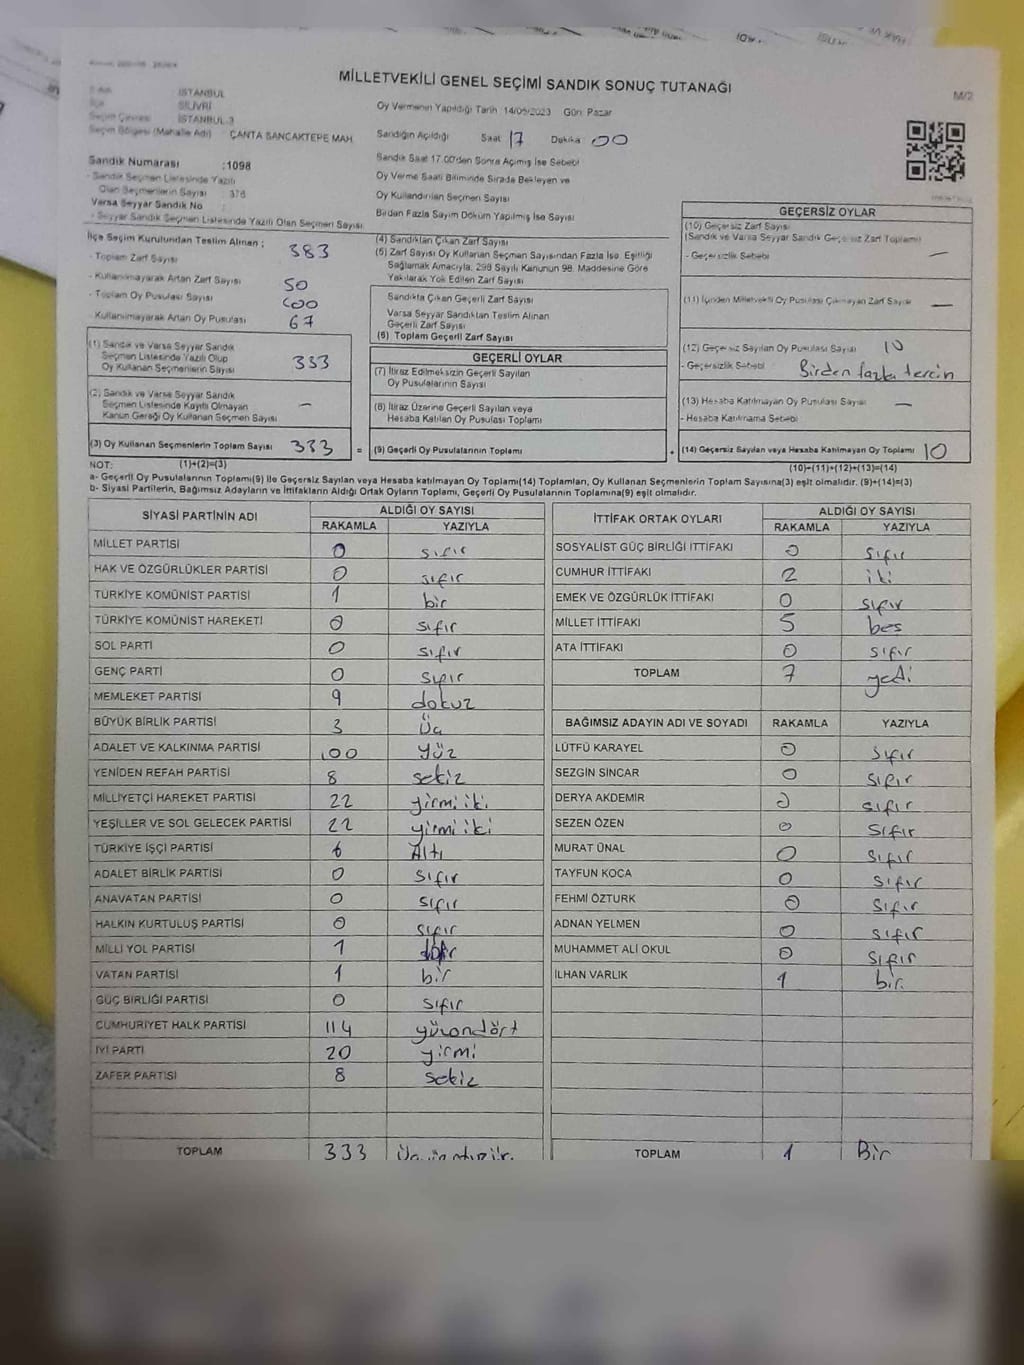 MİLLETVEKİLİ GENEL SEÇİMİ SANDIK SONUÇ TUTANAĞI
M/2
İSTANBUL
SİLİVRİ
Seçim Çevresi İSTANBUL-3
Seçim Bölgesi (Mahalle Adı) ÇANTA SANCAKTEPE MAH.
Sandık Numarası :1098
- Sandık Seçmen Listesinde Yazılı
Olan Seçmenlerin Sayısı 376
Varsa Seyyar Sandık No :
- Seyyar Sandık Seçmen Listesinde Yazılı Olan Seçmen Sayısı
Oy Vermenin Yapıldığı Tarih 14/05/2023 Gün: Pazar
Sandığın Açıldığı Saat 17 Dakika 00
Sandık Saat 17.00'den Sonra Açılmış İse Sebebi
Oy Verme Saati Bitiminde Sırada Bekleyen ve
Oy Kullandırılan Seçmen Sayısı
Birden Fazla Sayım Döküm Yapılmış İse Sayısı
İlçe Seçim Kurulundan Teslim Alınan :
- Toplam Zarf Sayısı 383
- Kullanılmayarak Artan Zarf Sayısı 50
- Toplam Oy Pusulası Sayısı 400
- Kullanılmayarak Artan Oy Pusulası 67
(1) Sandık ve Varsa Seyyar Sandık
Seçmen Listesinde Yazılı Olup
Oy Kullanan Seçmenlerin Sayısı 333
(2) Sandık ve Varsa Seyyar Sandık
Seçmen Listesinde Kayıtlı Olmayan
Kanun Gereği Oy Kullanan Seçmen Sayısı –
(3) Oy Kullanan Seçmenlerin Toplam Sayısı 333
(4) Sandıktan Çıkan Zarf Sayısı
(5) Zarf Sayısı Oy Kullanan Seçmen Sayısından Fazla İse, Eşitliği
Sağlamak Amacıyla, 298 Sayılı Kanunun 98. Maddesine Göre
Yakılarak Yok Edilen Zarf Sayısı
Sandıkta Çıkan Geçerli Zarf Sayısı
Varsa Seyyar Sandıktan Teslim Alınan
Geçerli Zarf Sayısı
(6) Toplam Geçerli Zarf Sayısı
GEÇERLİ OYLAR
(7) İtiraz Edilmeksizin Geçerli Sayılan
Oy Pusulalarının Sayısı
(8) İtiraz Üzerine Geçerli Sayılan veya
Hesaba Katılan Oy Pusulası Toplamı
= (9) Geçerli Oy Pusulalarının Toplamı
GEÇERSİZ OYLAR
(10) Geçersiz Zarf Sayısı
(Sandık ve Varsa Seyyar Sandık Geçersiz Zarf Toplamı)
- Geçersizlik Sebebi –
(11) İçinden Milletvekili Oy Pusulası Çıkmayan Zarf Sayısı –
(12) Geçersiz Sayılan Oy Pusulası Sayısı 10
- Geçersizlik Sebebi Birden fazla tercih
(13) Hesaba Katılmayan Oy Pusulası Sayısı –
- Hesaba Katılmama Sebebi
+ (14) Geçersiz Sayılan veya Hesaba Katılmayan Oy Toplamı 10
NOT: (1)+(2)=(3)
(10)+(11)+(12)+(13)=(14)
a- Geçerli Oy Pusulalarının Toplamı(9) ile Geçersiz Sayılan veya Hesaba katılmayan Oy Toplamı(14) Toplamları, Oy Kullanan Seçmenlerin Toplam Sayısına(3) eşit olmalıdır. (9)+(14)=(3)
b- Siyasi Partilerin, Bağımsız Adayların ve İttifakların Aldığı Ortak Oyların Toplamı, Geçerli Oy Pusulalarının Toplamına(9) eşit olmalıdır.
SİYASİ PARTİNİN ADI ALDIĞI OY SAYISI
RAKAMLA YAZIYLA
MİLLET PARTİSİ 0 sıfır
HAK VE ÖZGÜRLÜKLER PARTİSİ 0 sıfır
TÜRKİYE KOMÜNİST PARTİSİ 1 bir
TÜRKİYE KOMÜNİST HAREKETİ 0 sıfır
SOL PARTİ 0 sıfır
GENÇ PARTİ 0 sıfır
MEMLEKET PARTİSİ 9 dokuz
BÜYÜK BİRLİK PARTİSİ 3 Üç
ADALET VE KALKINMA PARTİSİ 100 yüz
YENİDEN REFAH PARTİSİ 8 sekiz
MİLLİYETÇİ HAREKET PARTİSİ 22 yirmi iki
YEŞİLLER VE SOL GELECEK PARTİSİ 22 yirmi iki
TÜRKİYE İŞÇİ PARTİSİ 6 Altı
ADALET BİRLİK PARTİSİ 0 sıfır
ANAVATAN PARTİSİ 0 sıfır
HALKIN KURTULUŞ PARTİSİ 0 sıfır
MİLLİ YOL PARTİSİ 1
VATAN PARTİSİ 1 bir
GÜÇ BİRLİĞİ PARTİSİ 0 sıfır
CUMHURİYET HALK PARTİSİ 114 yüzondört
İYİ PARTİ 20 yirmi
ZAFER PARTİSİ 8 sekiz
TOPLAM 333
İTTİFAK ORTAK OYLARI ALDIĞI OY SAYISI
RAKAMLA YAZIYLA
SOSYALİST GÜÇ BİRLİĞİ İTTİFAKI 0 sıfır
CUMHUR İTTİFAKI 2 iki
EMEK VE ÖZGÜRLÜK İTTİFAKI 0 sıfır
MİLLET İTTİFAKI 5 beş
ATA İTTİFAKI 0 sıfır
TOPLAM 7 yedi
BAĞIMSIZ ADAYIN ADI VE SOYADI RAKAMLA YAZIYLA
LÜTFÜ KARAYEL 0 sıfır
SEZGİN SİNCAR 0 sıfır
DERYA AKDEMİR 0 sıfır
SEZEN ÖZEN 0 sıfır
MURAT ÜNAL 0 sıfır
TAYFUN KOCA 0 sıfır
FEHMİ ÖZTÜRK 0 sıfır
ADNAN YELMEN 0 sıfır
MUHAMMET ALİ OKUL 0 sıfır
İLHAN VARLIK 1 bir
TOPLAM 1 Bir